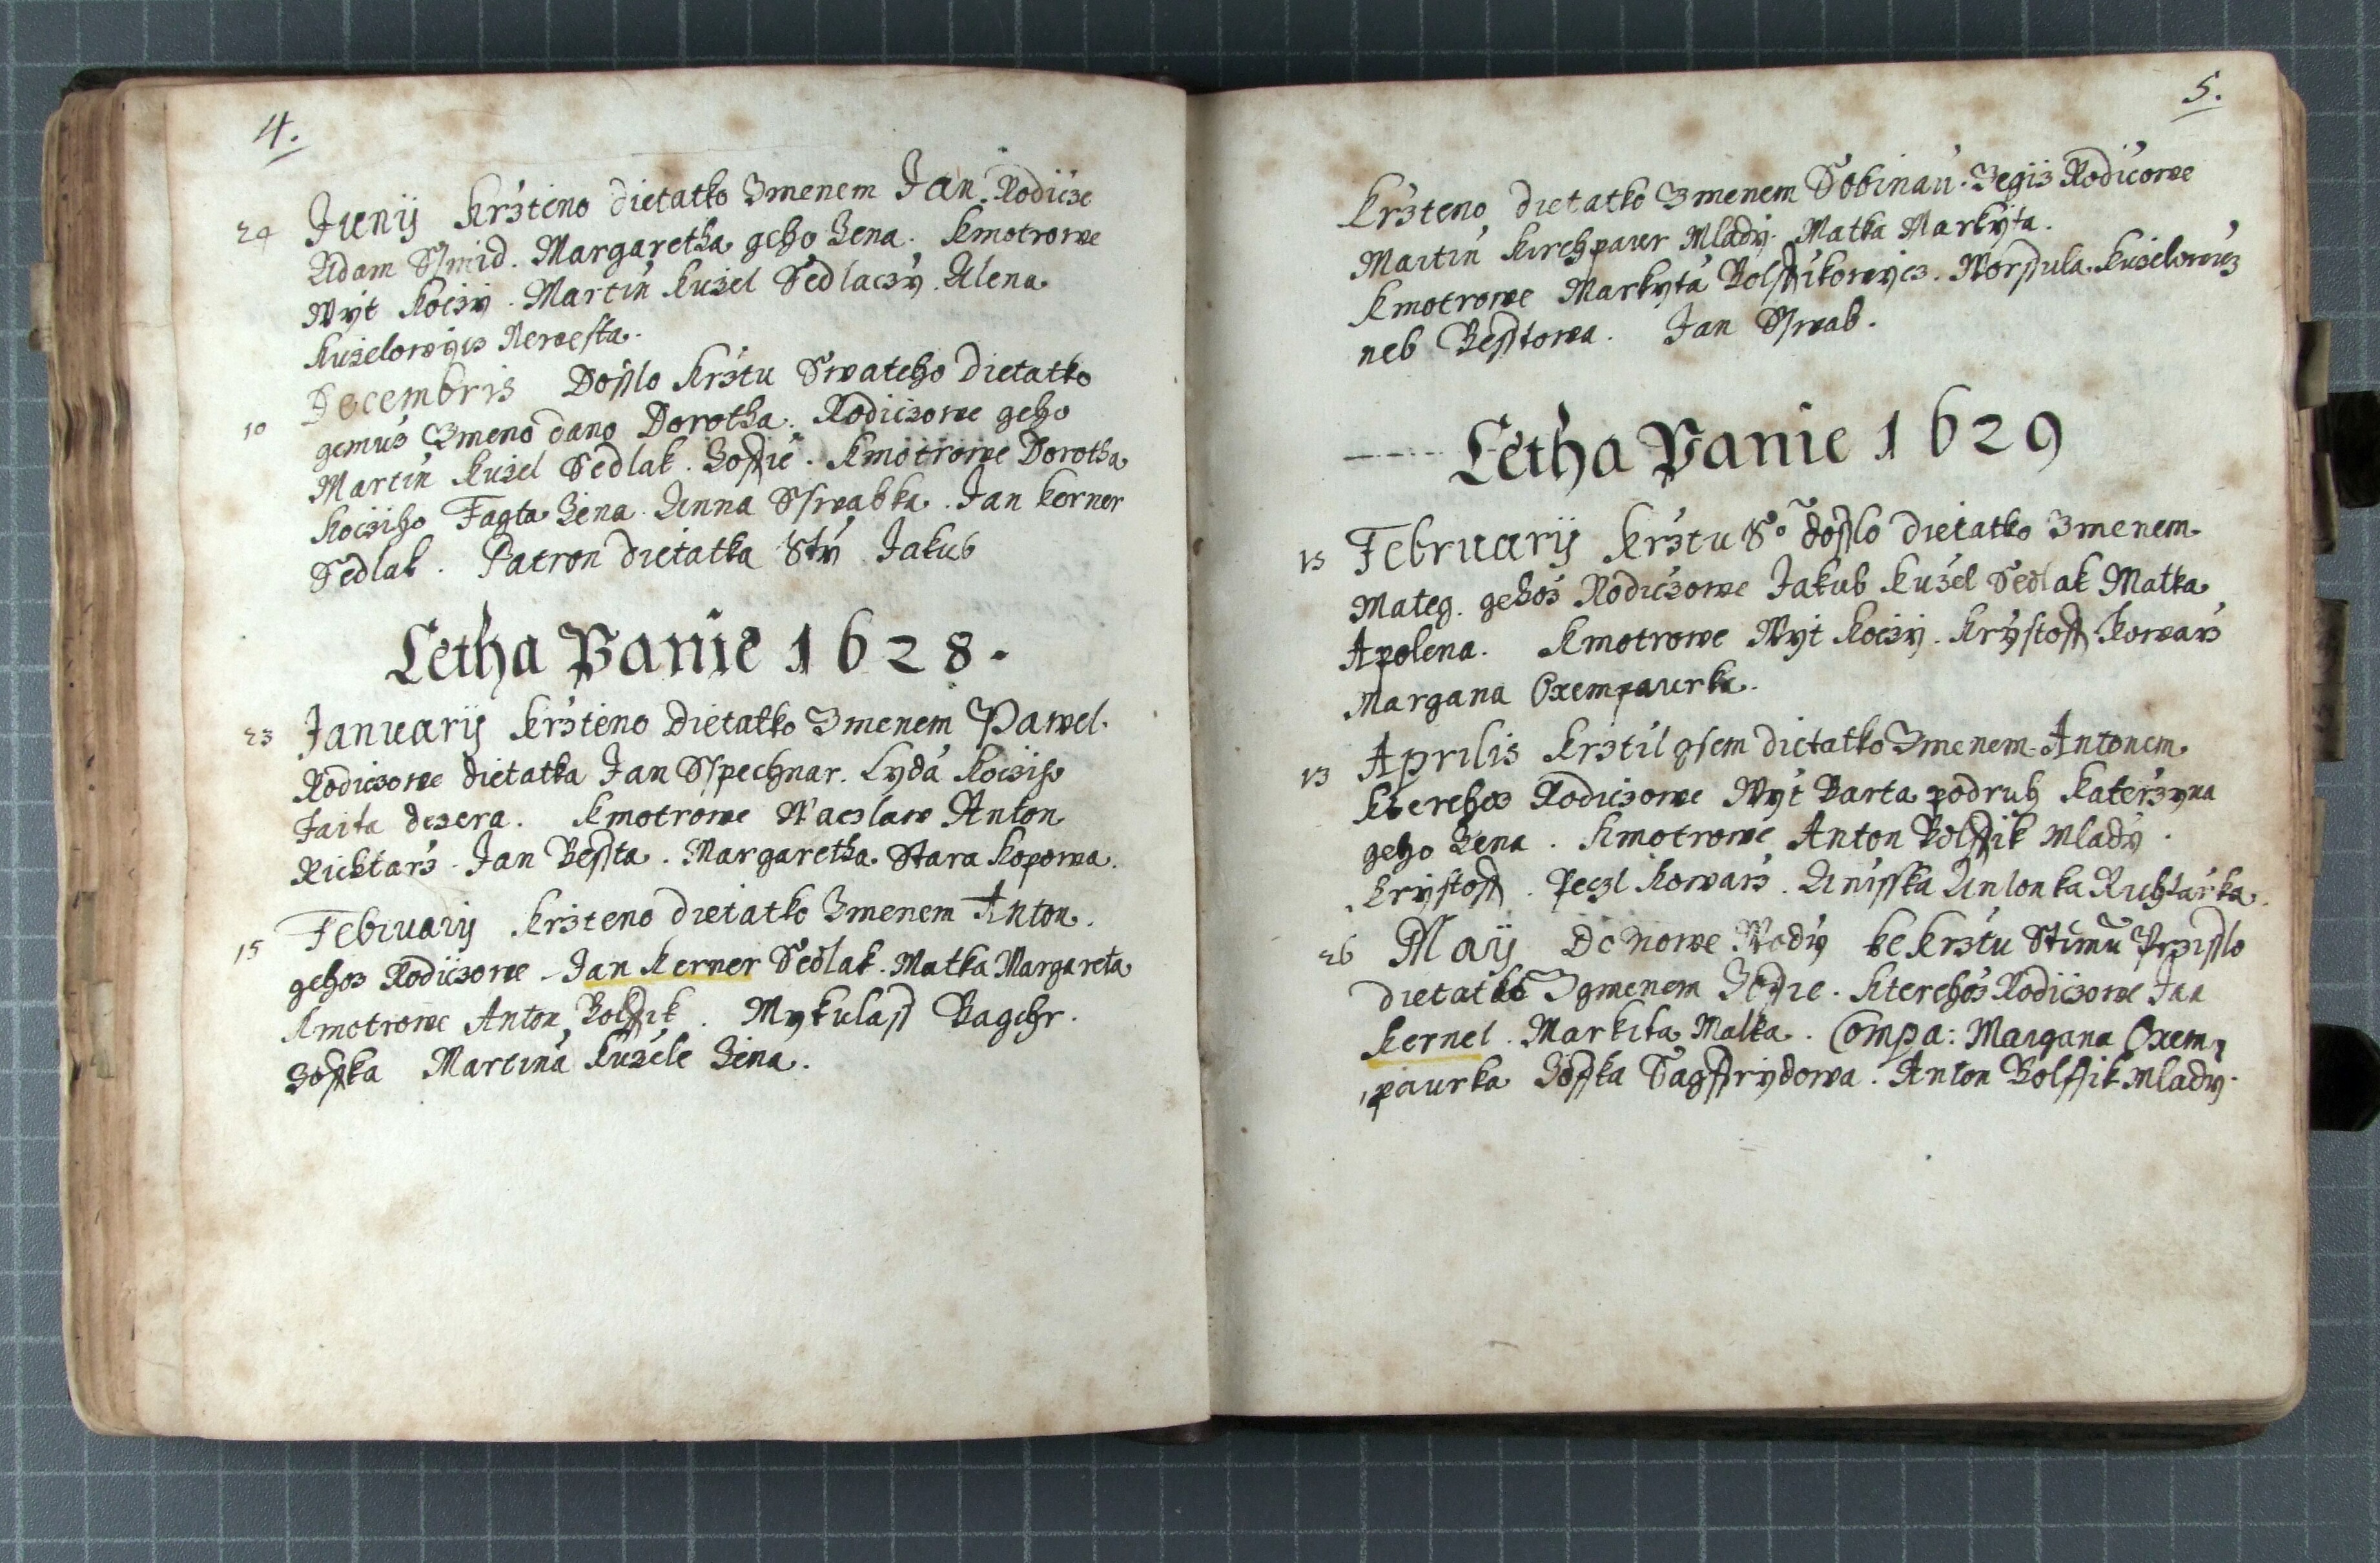 4.
24 Junij Krzteno dietatko Zmenem Jan. Rodicze
Adam Ssmid. Margaretha geho Zena. Kmotrowe
Wyt Koczy. Martin Kuzel Sedlaczy. Alena
Kuzelowycz Newesta.
10 Decembris Dosslo Krztu Swateho dietatko
gemuz Zmeno dano Dorotha. Rodiczowe geho
Martin Kuzel Sedlak. Zoffie. Kmotrowe Dorotha
Kocziho Fagta Zena. Anna Sswabka. Jan Kerner
Sedlak. Patron dietatka Sty Jakub
Letha Panie 1628.
23 Januarij Krzteno dietatko Zmenem Pawel.
Rodiczowe dietatka Jan Sspechnar. Lyda Kocziho
Faita dczera. Kmotrowe Waczlaw Anton
Richtarz. Jan Bessta. Margaretha Stara Kopowa.
15 Februarij Krzteno dietatko Zmenem Anton.
gehoz Rodiczowe Jan Kerner Sedlak. Matka Margareta
Kmotrowe Anton Bolffik. Mykulass Bagehr.
Zoffka Martina Kuzele Zena.
5.
Krzteno dietatko Zmenem Sobinau. Zegiz Rodicowe
Martin Kirchpaur Mlady. Matka Markyta.
Kmotrowe Markyta Bolffikowycz. Worssula Kuzelowicz
neb Besstowa. Jan Sswab.
Letha Panie 1629
15 Februarij Krztu So dosslo dietatko Zmenem
Mateg. gehoz Rodiczowe Jakub Kuzel Sedlak Matka
Apolena. Kmotrowe Wyt Koczy. Krystoff Kowarz
Margana Oxempaurka.
13 Aprilis Krztil gsem dietatko Zmenem Antonem
kterehoz Rodiczowe Wyt Barta podruh Katerzyna
geho Zena. Kmotrowe Anton Bolffik mlady.
Krystoff Peczl Kowarz. Anisska Antonka Ruchtarka.
26 Maij Do Nowe Wody ke Krztu Stimu Przisslo
dietatko Zgmenem Zoffie. Kterehoz Rodiczowe Jan
Kernel. Markita Matka. Compa: Margana Oxem,
,paurka Zoffka Sagffrydowa. Anton Bolffik mlady.